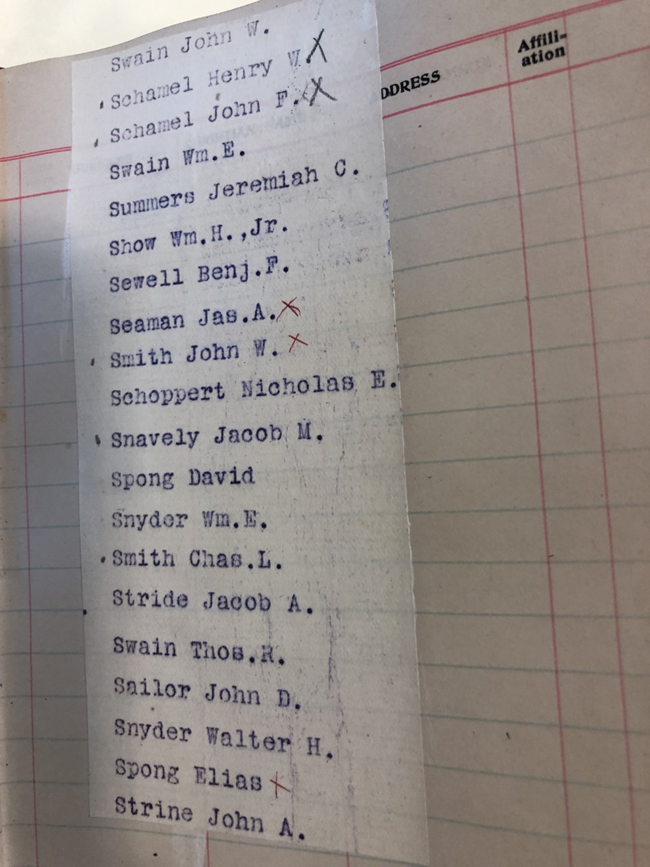 Swain John W.
Schamel Henry W. X
Schamel John F. X
Swain Wm.E.
Summers Jeremiah C.
Show Wm.H.,Jr.
Sewell Benj.F.
Seaman Jas.A. X
Smith John W. X
Schoppert Nicholas E.
Snavely Jacob M.
Spong David
Snyder Wm.E.
Smith Chas.L.
Stride Jacob A.
Swain Thos.R.
Sailor John D.
Snyder Walter H.
Spong Elias X
Strine John A.
DDRESS
Affili-
ation